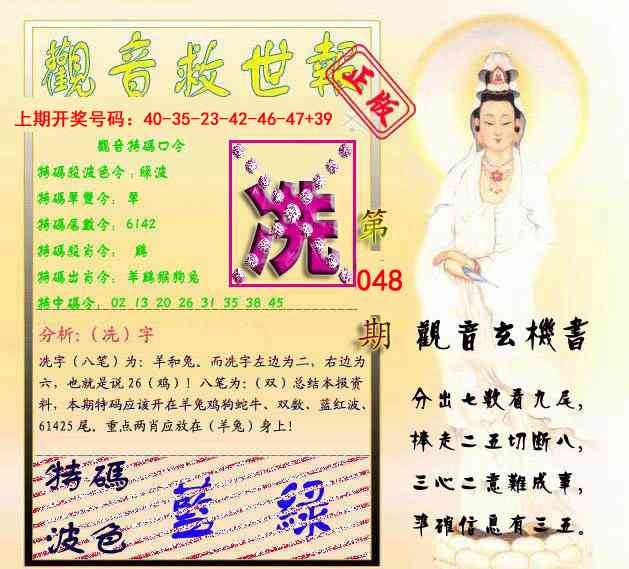 觀音救世報
正版
上期开奖号码：40-35-23-42-46-47+39
觀音特碼口令
特碼殺波色令：綠波
特碼單雙令： 單
特碼尾數令： 6142
特碼殺肖令： 鷄
特碼出肖令： 羊鷄猴狗兔
特中碼令： 02 13 20 26 31 35 38 45
冼
第
048
期
分析：（冼）字
冼字（八笔）为：羊和兔。而冼字左边为二，右边为
六，也就是说26（鸡）！八笔为：（双）总结本报资
料，本期特码应该开在羊兔鸡狗蛇牛、双数、蓝红波、
61425尾。重点两肖应放在（羊兔）身上！
特碼
波色
藍 綠
觀音玄機書
分出七數看九尾，
棒走二五切断八，
三心二意難成事，
準確信息有三五。